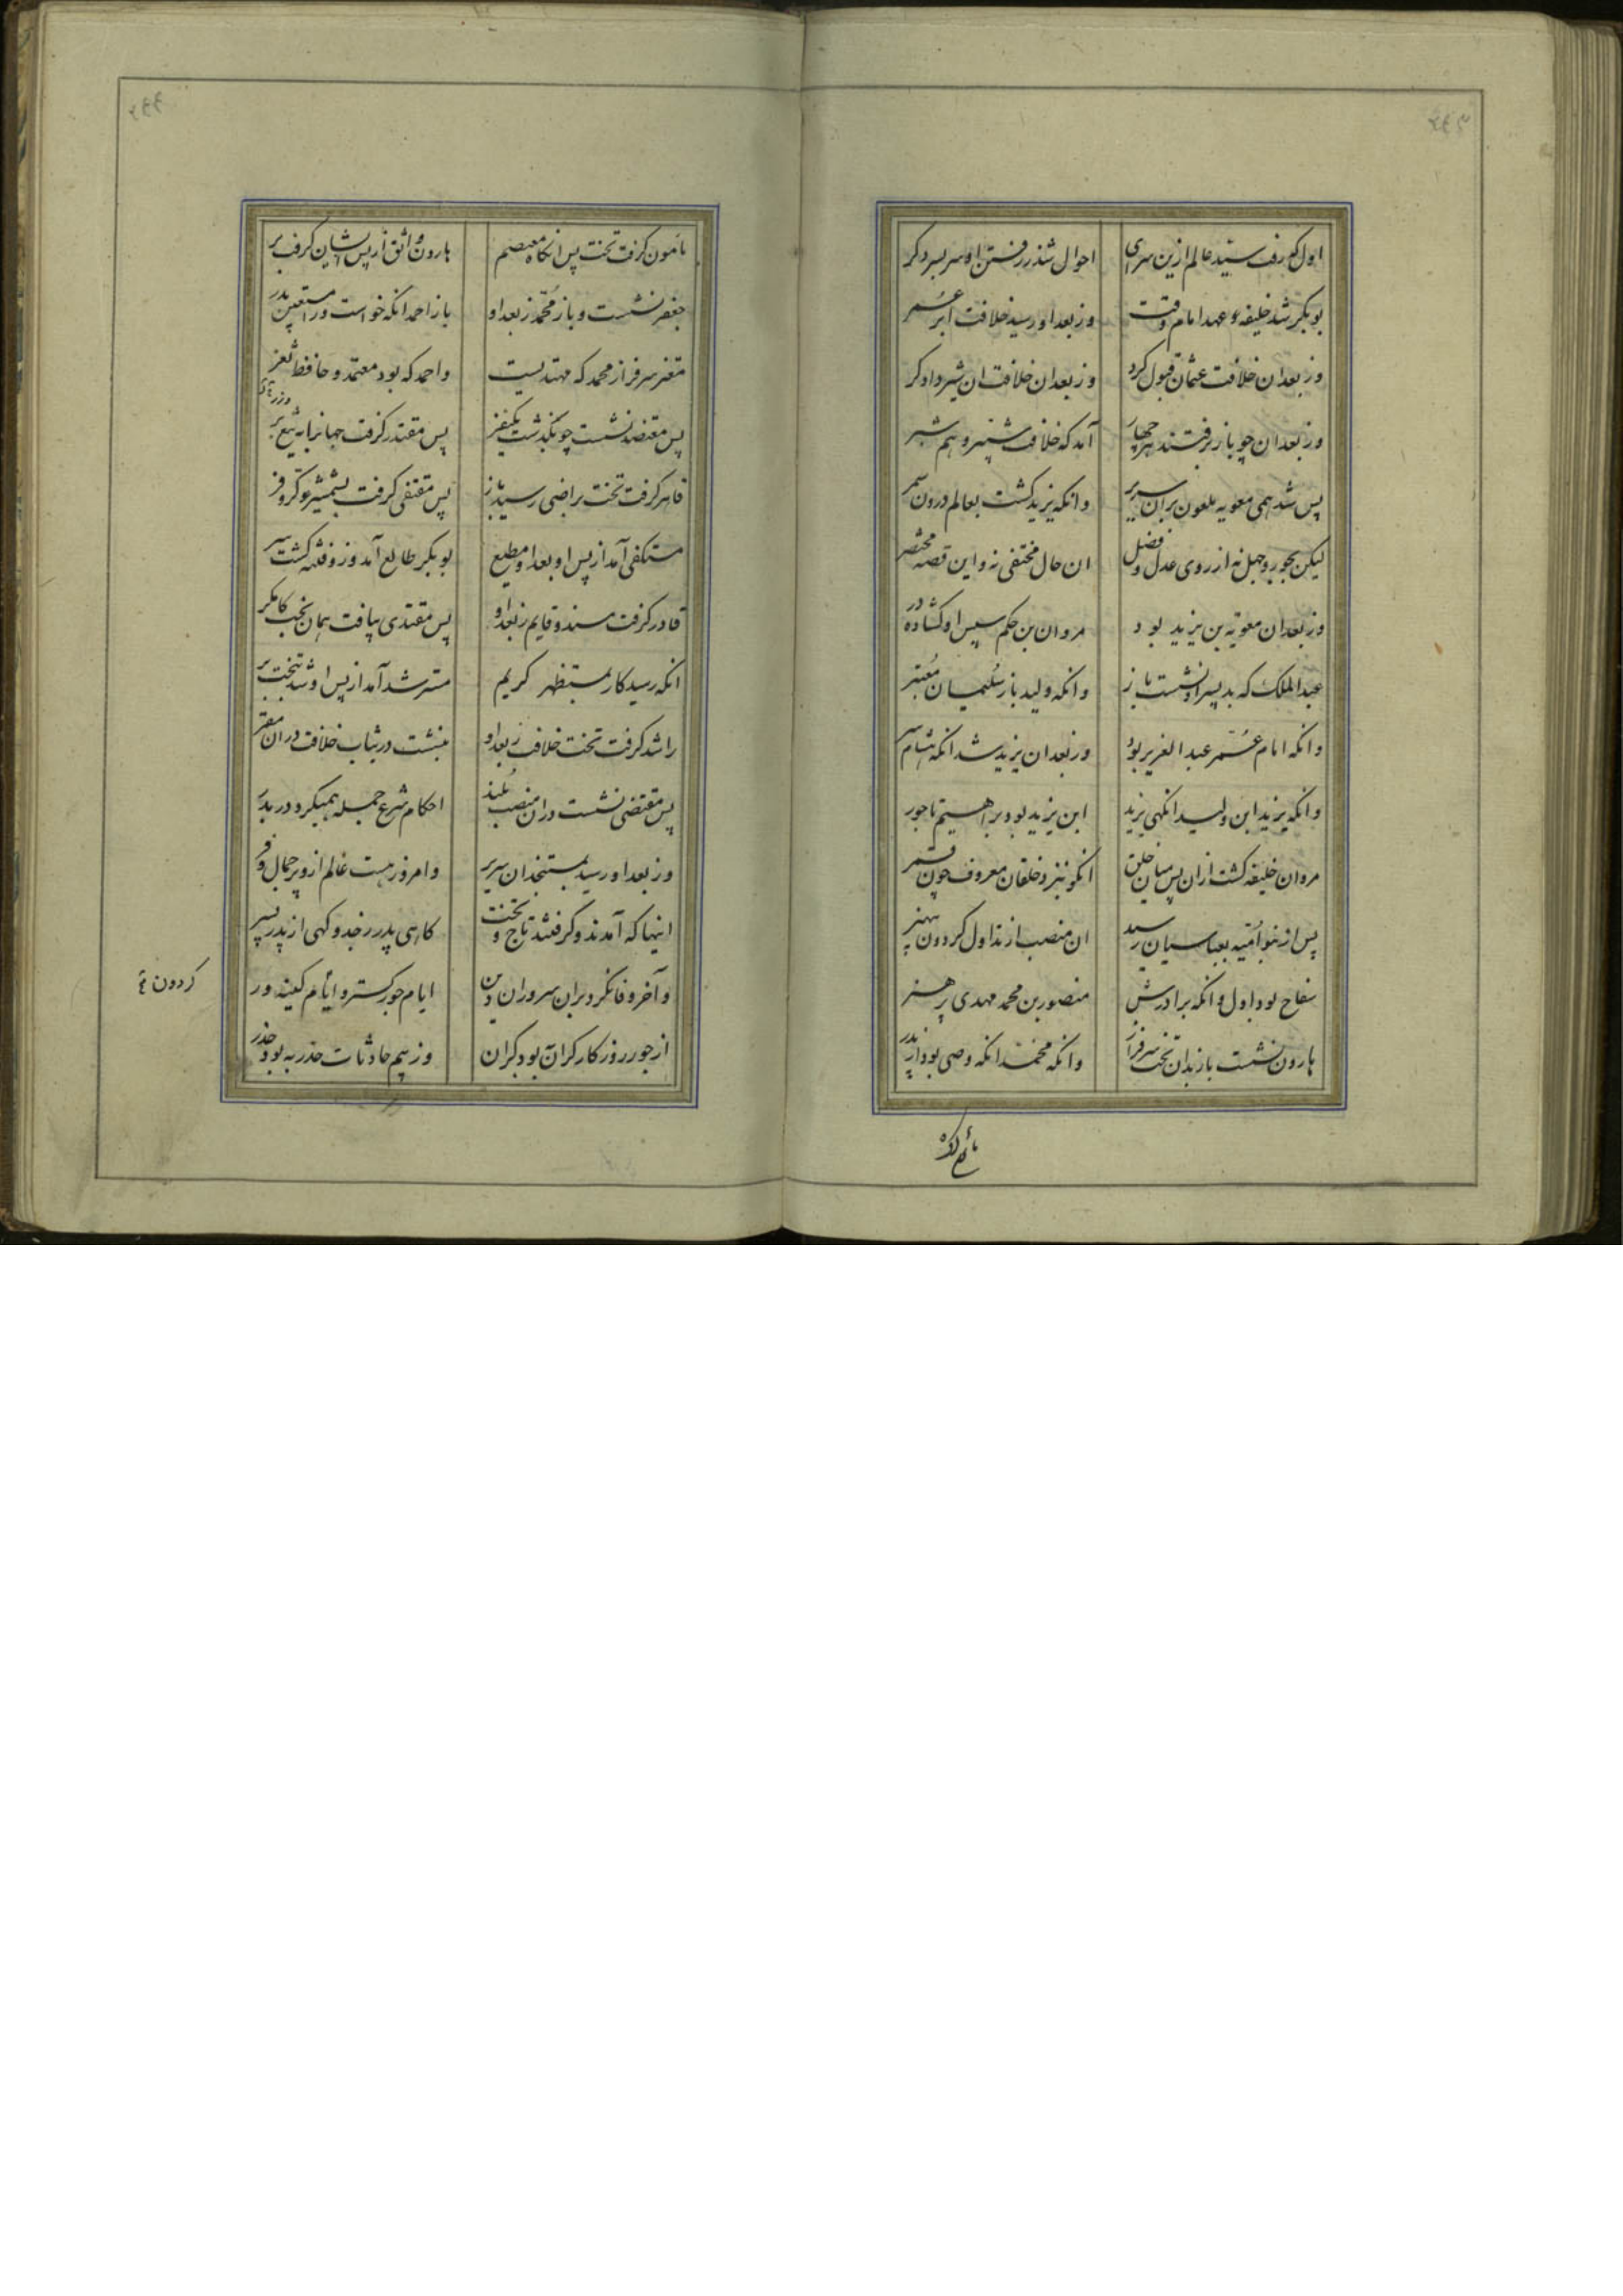 اول که رفت سید عالم ازین سرای احوال شد ز رفتن او سر بسر دکر
بوبکر شد خلیفه و عهد امام وقت وز بعد او رسید خلافت ابر عمر
وز بعد ان خلافت عثمان قبول کرد وز بعد ان خلافت ان شیر دادکر
وز بعد ان چو باز برفتند هر چهار آمد که خلافت شبیر و هم شبر
پس شد همی معویه ملعون بران سریر وانکه یزید کشت بعالم درون سمر
لیکن بجور و جهل نه از روی عدل و فضل ان حال مختفی نه و این قصه مختصر
وز بعد ان معویه بن یزید بود مروان بن حکم سپس او کشاده در
عبد الملک که بد پسر او نشست باز وانکه ولید باز سلیمان معتبر
وانکه امام عمر عبد العزیز بود وز بعد ان یزید شد انکه هشام سر
وانکه یزید ابن ولید انکهی یزید ابن یزید بود براهیم تاجور
مروان خلیفه کشت از ان پس میان خلق انکو بنزد خلقان معروف چون قمر
پس از بنو امیه بعباسیان رسید ان منصب از تداول کردون
سفاح بود اول وانکه برادرش منصور بن محمد مهدی پر هنر
هارون نشست باز بدان تخت سرفراز وانکه محمد انکه وصی بود از پدر
مامون کرفت
مامون کرفت تخت پس انکاه معتصم هارون واثق از پس ایشان کرفت بر
جعفر نشست و باز محمد ز بعد او باز احمد انکه خواست ورا مستعین پدر
معتز سرفراز محمد که مهتدیست واحمد که بود معتمد و حافظ ثغر
پس معتضد نشست چو بکذشت مکتفی پس مقتدر کرفت جهانرا به تیغ بر
قاهر کرفت تخت براضی رسید باز پس متقی کرفت بشمشیر و کر و فر
مستکفی آمد از پس او بعد او مطیع بوبکر طایع آمد وزو فتنه کشت سر
قادر کرفت مسند و قایم ز بعد او پس مقتدی بیافت همان تخت کامکر
انکه رسید کار بمستظهر کریم مسترشد آمد از پس او شد بتخت بر
راشد کرفت تخت خلافت ز بعد او بنشست در ثیاب خلافت در ان مقر
پس مقتضی نشست دران منصب بلند احکام شرع جمله همیکرد در بدر
وز بعد او رسید بمستنجد ان سریر وامروز هست عالم ازو پر جمال و فر
اینها که آمدند و کرفتند تاج و تخت کاهی پدر ز جد و کهی از پدر پسر
و آخر وفا نکرد بران سروران دین ایام جور کستر و ایام کینه ور
کردون
از جور روزکار کران بود بکران وز بیم حادثات حذر به بود حذر